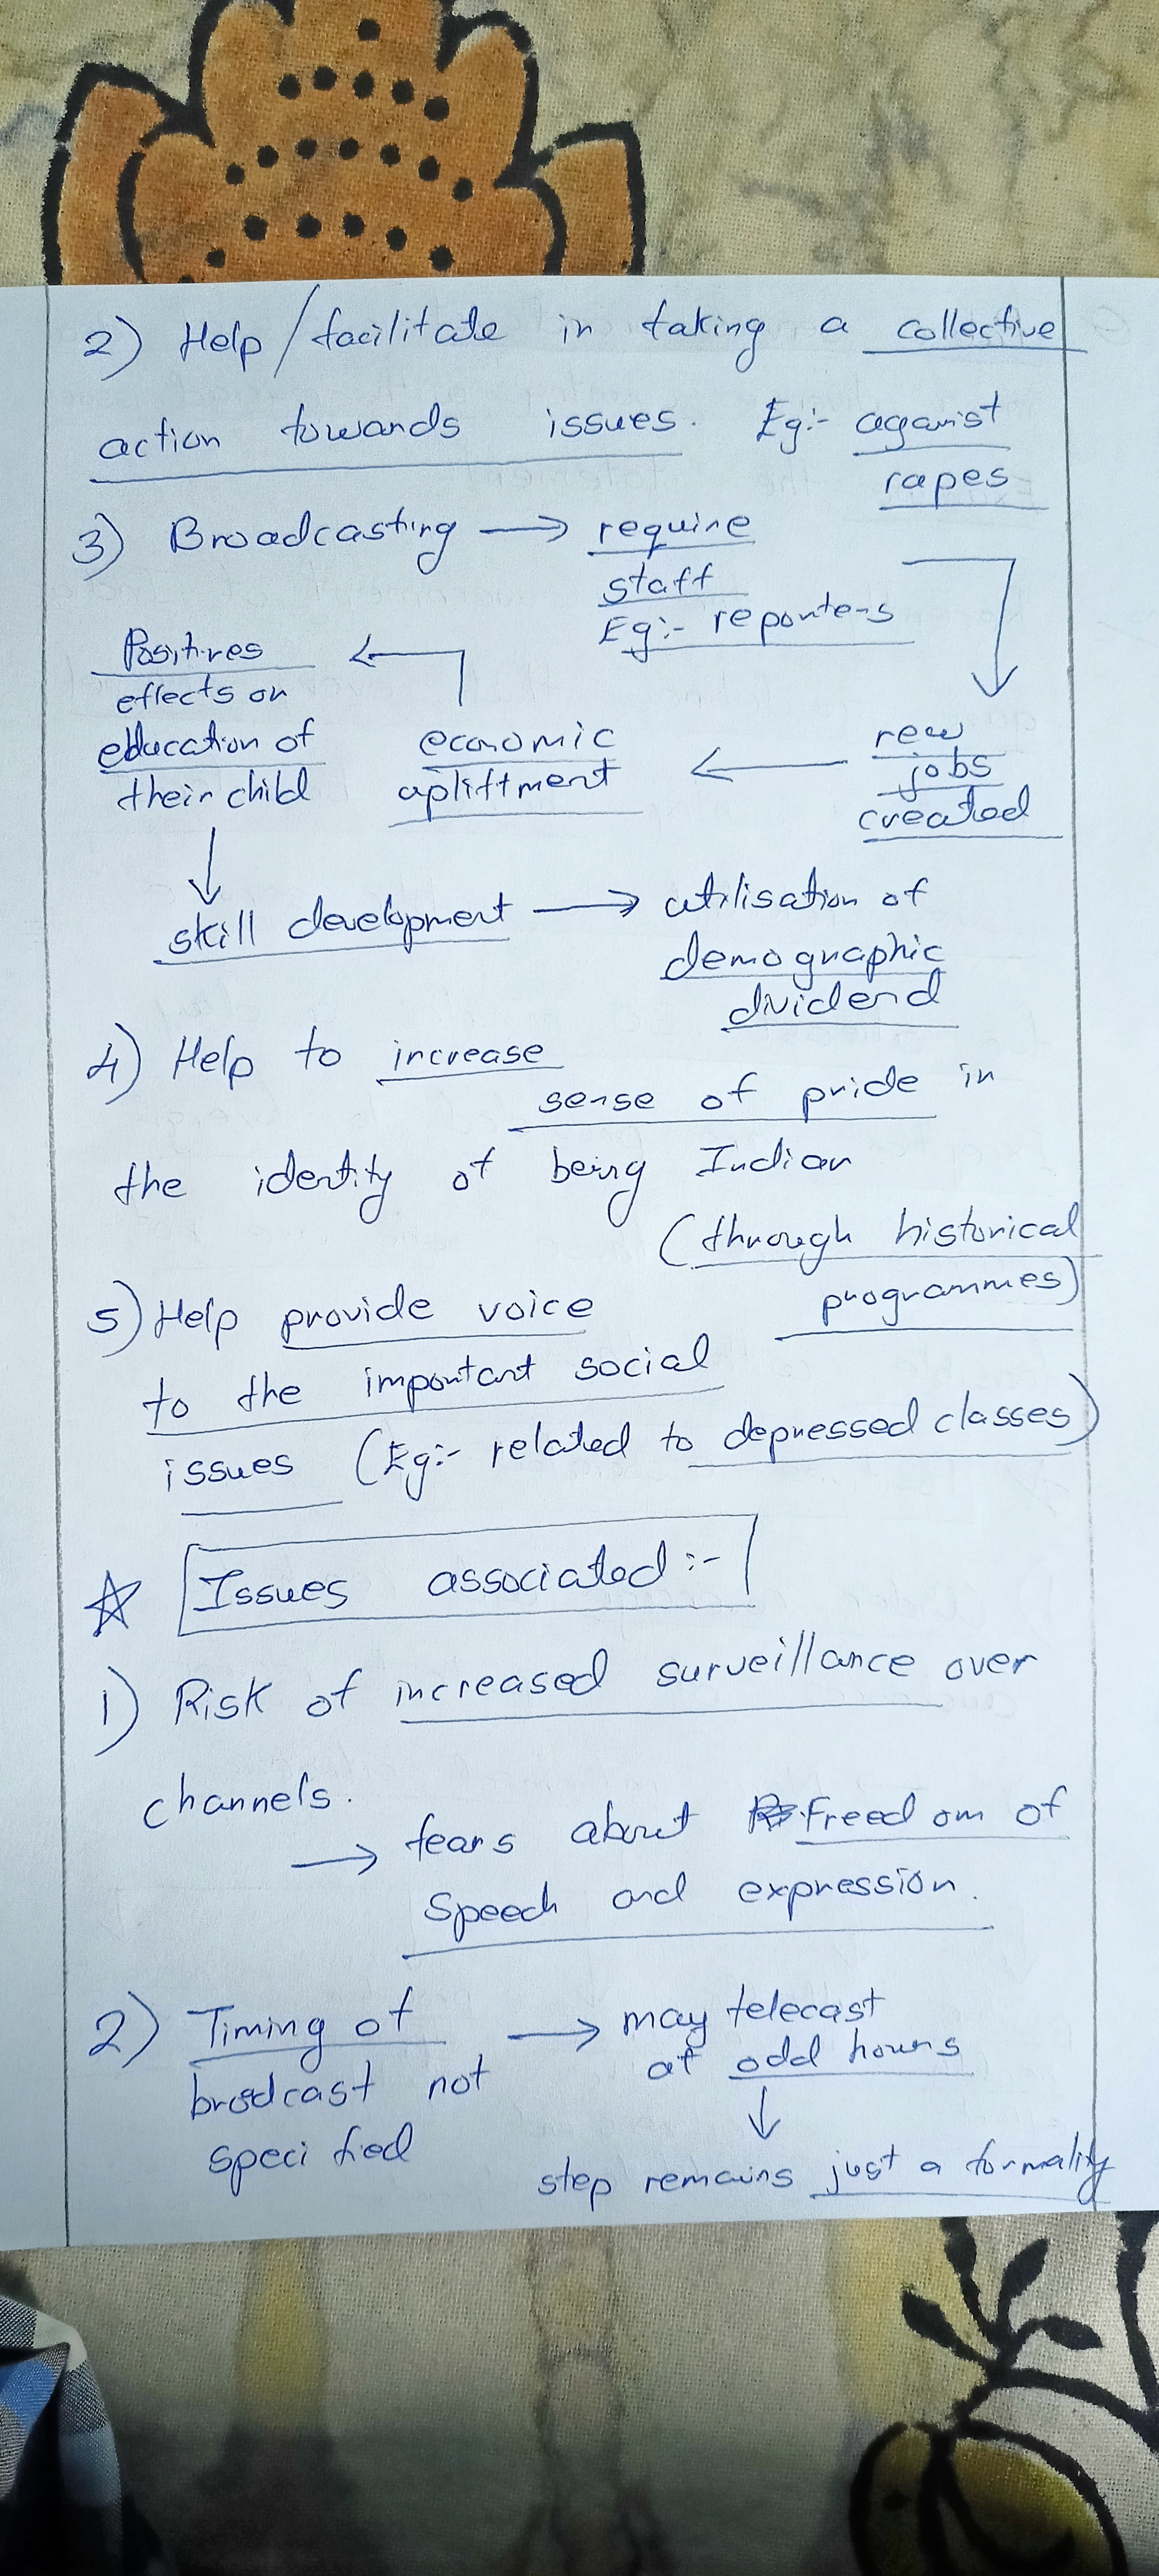 2) Help/facilitate in taking a collective
action towards issues. Eg:- aganist
rapes
3) Broadcasting → require
staff
Eg:- reporters
new
jobs
created
economic
upliftment
Positives
effects on
education of
their child
skill development → utilisation of
demographic
dividend
4) Help to increase
sense of pride in
the identity of being Indian
(through historical
programmes)
5) Help provide voice
to the important social
issues (Eg:- related to depressed classes)
☆ Issues associated :-
1) Risk of increased surveillance over
channels.
→ fears about Freedom of
Speech and expression.
2) Timing of → may telecast
brodcast not at odd hours
specified
step remains just a formality